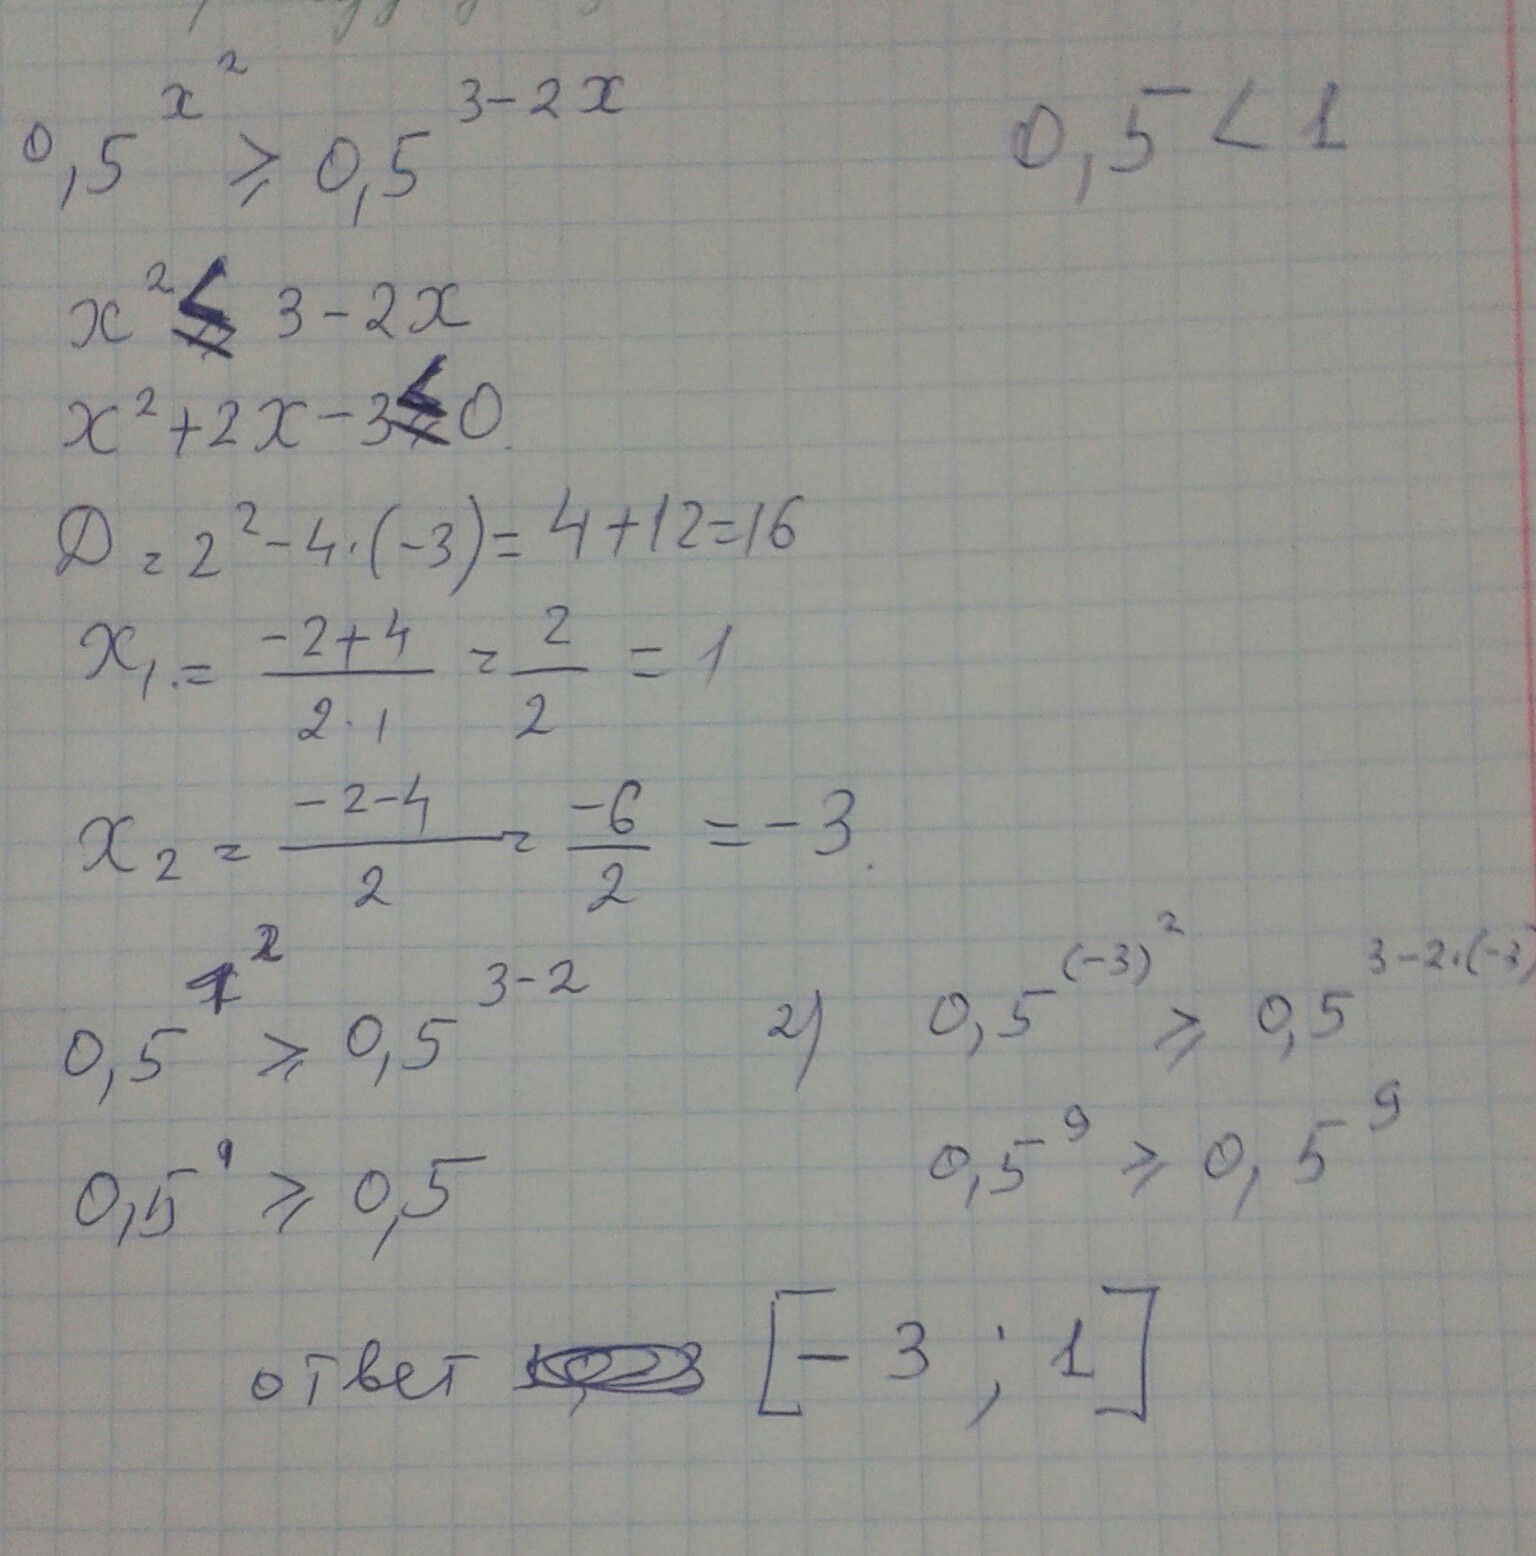 0,5^{x^2} ⩾ 0,5^{3-2x}
0,5 < 1
x² ≤ 3-2x
x²+2x-3≤0.
D=2²-4·(-3)=4+12=16
x₁.= \frac{-2+4}{2·1} = \frac{2}{2} = 1
x₂= \frac{-2-4}{2} = \frac{-6}{2} =-3.
0,5^{1^2} ⩾ 0,5^{3-2}
2) 0,5^{(-3)^2} ⩾ 0,5^{3-2·(-3)}
0,5^1 ⩾ 0,5
0,5^9 ⩾ 0,5^9
ответ [-3 ; 1]